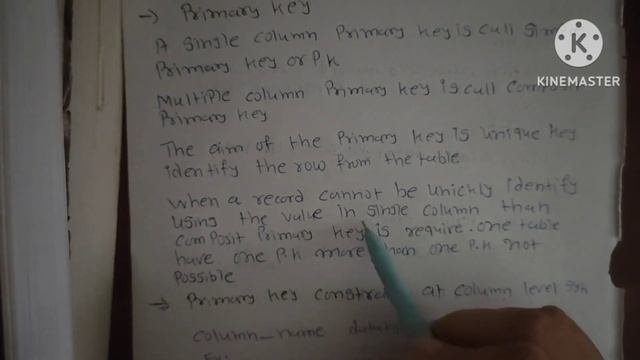 → Primary key
A single column Primary key is call
Primary key or P.k
Multiple column Primary key is call
Primary key
The aim of the Primary key is unique key
identify the row from the table
when a record cannot be unickly identify
using the value in single column than
composit Primary key is require. one table
have one P.k more than one P.k not
Possible
→ Primary key at column level
column_name
Ex:
K
KINEMASTER